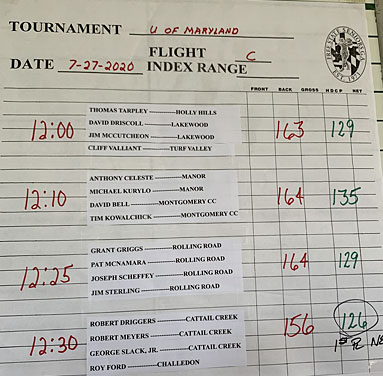 TOURNAMENT U OF MARYLAND
FLIGHT C
DATE 7-27-2020 INDEX RANGE
FRONT BACK GROSS HDCP NET
THOMAS TARPLEY ----------HOLLY HILLS
DAVID DRISCOLL ----------LAKEWOOD
12:00 163 129
JIM MCCUTCHEON ----------LAKEWOOD
CLIFF VALLIANT ----------TURF VALLEY
ANTHONY CELESTE ----------MANOR
MICHAEL KURYLO ----------MANOR
12:10 164 135
DAVID BELL ----------MONTGOMERY CC
TIM KOWALCHICK ----------MONTGOMERY CC
GRANT GRIGGS ----------ROLLING ROAD
PAT MCNAMARA ----------ROLLING ROAD
12:25 164 129
JOSEPH SCHEFFEY ----------ROLLING ROAD
JIM STERLING ----------ROLLING ROAD
ROBERT DRIGGERS ----------CATTAIL CREEK
ROBERT MEYERS ----------CATTAIL CREEK
12:30 156 126
GEORGE SLACK, JR. ----------CATTAIL CREEK
ROY FORD ----------CHALLEDON